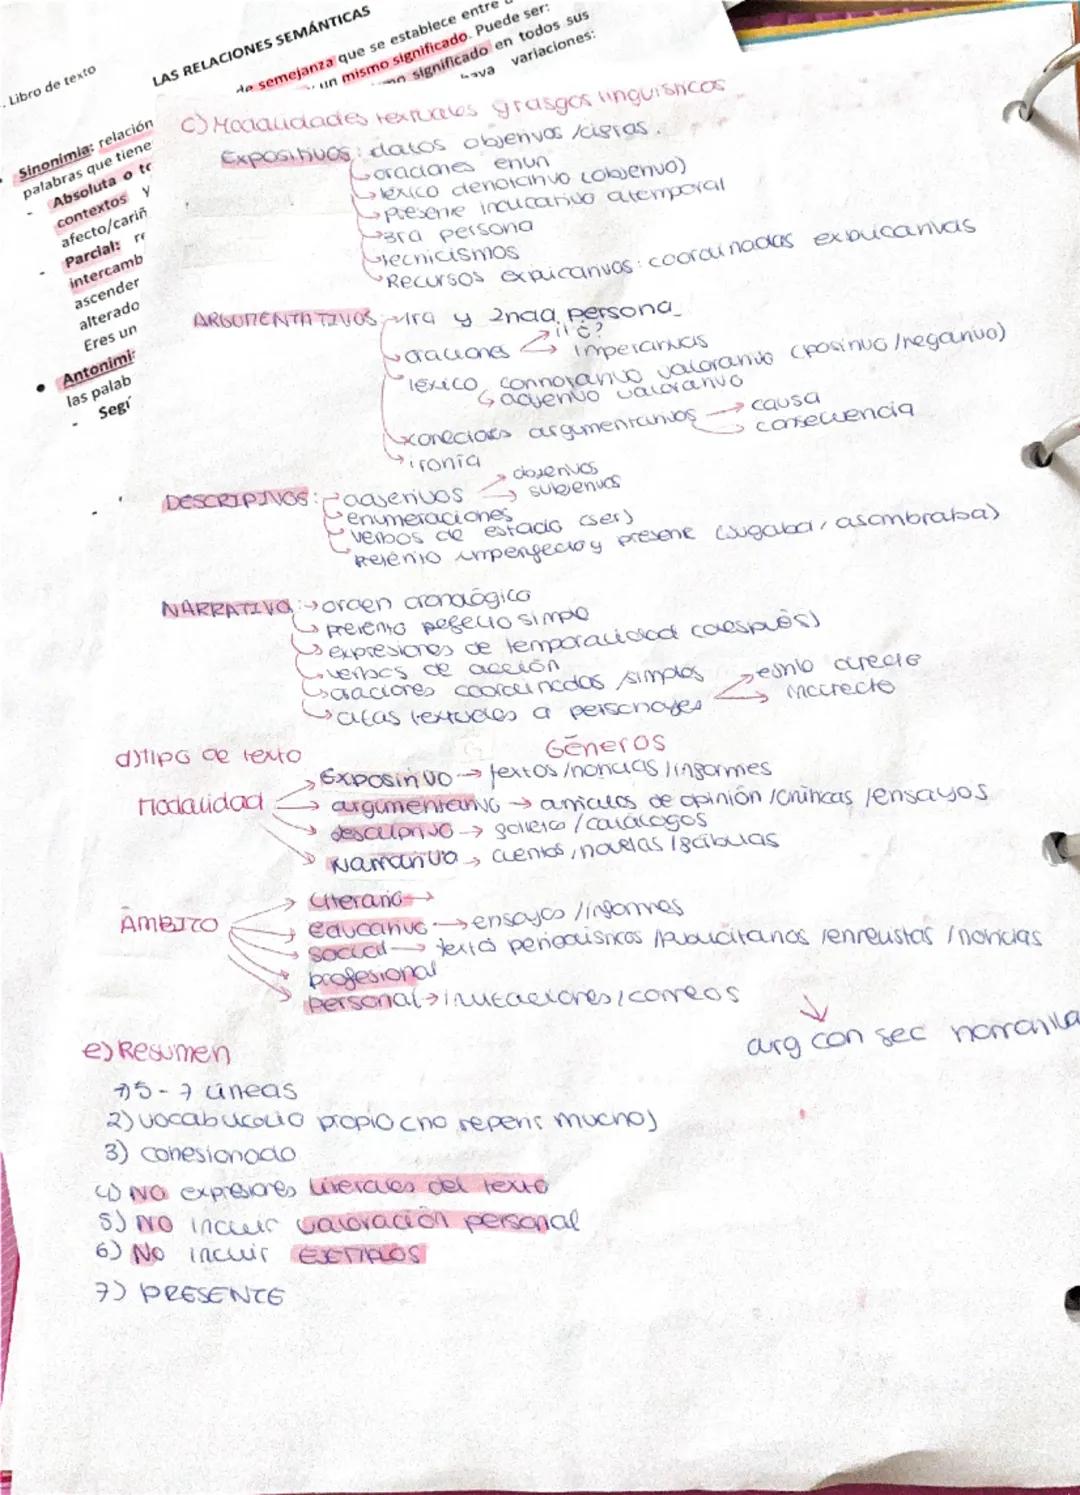 . Libro de texto
LAS RELACIONES SEMÁNTICAS
de semejanza que se establece entre
un mismo significado. Puede ser:
significado en todos sus
haya variaciones:
Sinonimia: relación
palabras que tiene
- Absoluta o to
contextos y
afecto/cariñ
- Parcial: re
intercamb
ascender
alterado
Eres un
• Antonimi
las palab
- Segí
c) Modalidades textuales grasgos linguísticos
Expositivos: datos objetivos /cifras.
oraciones enun
léxico denotativo (objetivo)
presente indicativo atemporal
3ra persona
tecnicismos
Recursos explicativos: coordinadas explicativas
ARGUMENTATIVOS → 1ra y 2nda persona
oraciones → ¡! ¿?
→ imperativas
léxico connotativo valorativo (positivo/negativo)
↳ adjetivo valorativo
conectores argumentativos → causa
→ consecuencia
ironía
DESCRIPTIVOS: adjetivos → objetivos
→ subjetivos
enumeraciones
verbos de estado (ser)
Pretérito imperfecto y presente (jugaba, asombraba)
NARRATIVO: → orden cronológico
pretérito pefecto simple
expresiones de temporalidad (después)
verbos de acción
oraciones coordinadas /simples
citas textuales a personajes → estilo directo
→ indirecto
d) tipo de texto
Géneros
Modalidad
Expositivo → textos /noticias /informes
argumentativo → artículos de opinión /críticas /ensayos
descriptivo → folleto /catálogos
Narrativo → cuentos, novelas /fábulas
ÁMBITO
Literario →
educativo → ensayos /informes
social → textos periodísticos /publicitarios /entrevistas /noticias
profesional
Personal → invitaciones, correos
arg con sec narrativa
e) Resumen
1) 5 - 7 líneas
2) vocabulario propio (no repetir mucho)
3) cohesionado
4) NO expresiones literales del texto
5) NO incluir valoración personal
6) No incluir EJEMPLOS
7) PRESENTE